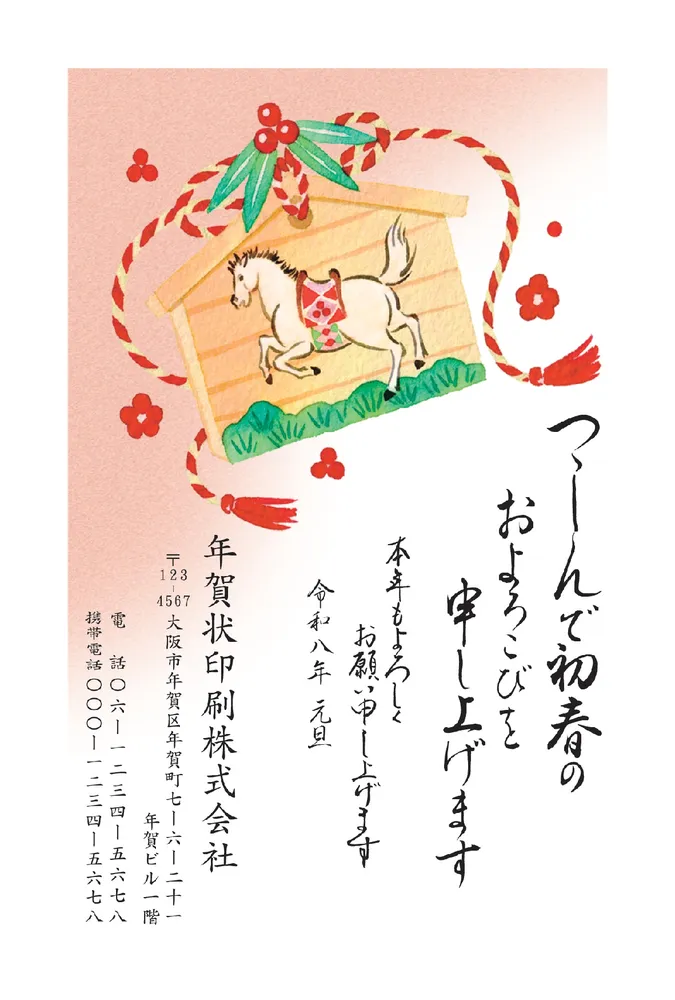 つゝしんで初春の
およろこびを
申し上げます
本年もよろしく
お願い申し上げます
令和八年 元旦
年賀状印刷株式会社
〒123-4567 大阪市年賀区年賀町七ー六ー二十一
年賀ビル一階
電 話〇六ー一二三四ー五六七八
携帯電話〇〇〇ー一二三四ー五六七八